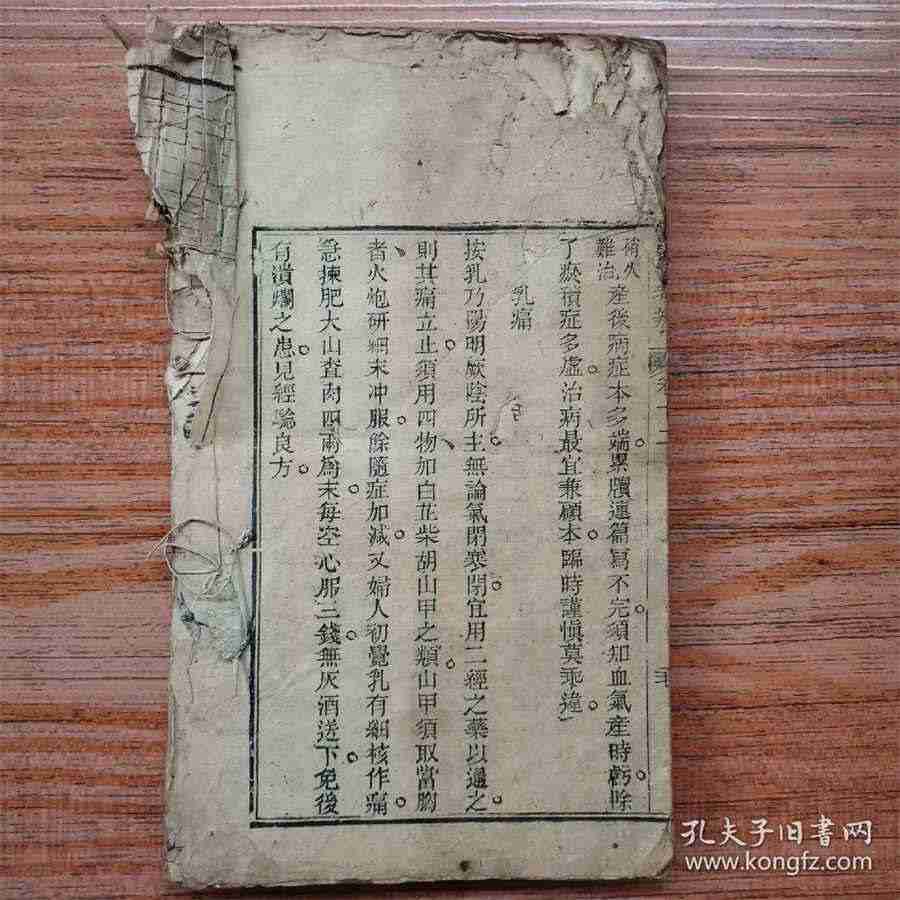 稍久
難治
產後病症本多端槩牘連篇寫不完須知血氣產時虧除
了瘀積症多虛治病最宜兼顧本臨時謹慎莫乖違
乳痛
按乳乃陽明厥陰所主無論氣閉寒閉宜用二經之藥以通之
則其痛立止須用四物加白芷柴胡山甲之類山甲須取當胸
者火炮研細末冲服餘隨症加減又婦人初覺乳有細核作痛
急揀肥大山查肉四兩為末每空心服三錢無灰酒送下免後
有潰爛之患見經驗良方
孔夫子旧書网
www.kongfz.com